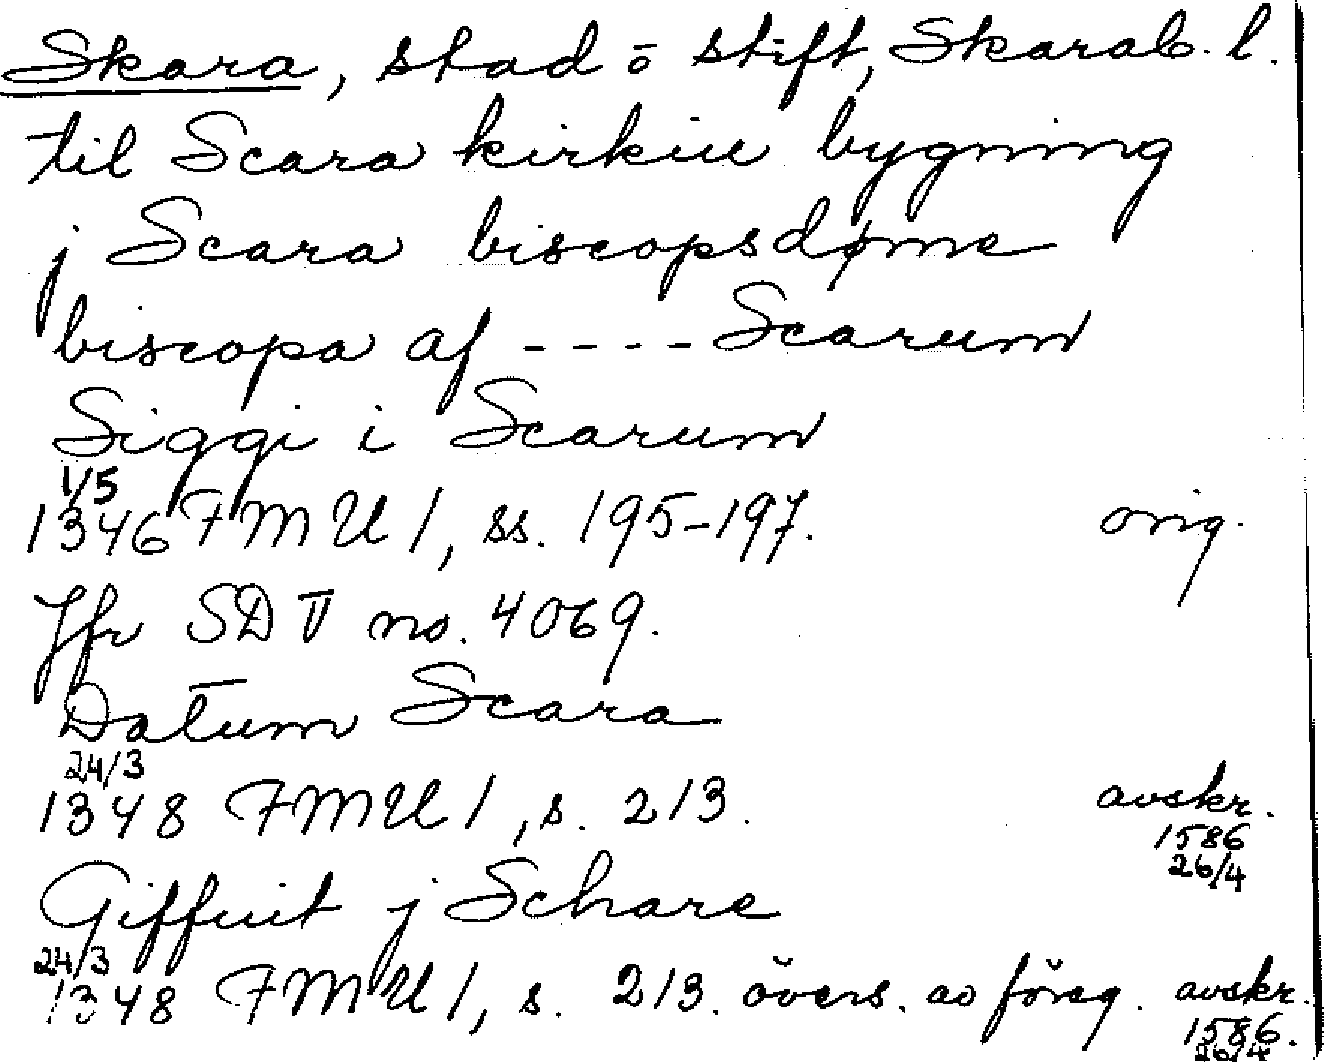 Skara, stad o stift, Skarab. l.
til Scara kirkiu bygning
j Scara biscopsdøme
biscopa af ---- Scarum
Siggi i Scarum
1/5
1346 FMU 1, ss. 195-197. orig.
Jfr SD V no. 4069.
Datum Scara
24/3
1348 FMU 1, s. 213. avskr.
1586
26/4
Giffuit j Schare
24/3
1348 FMU 1, s. 213. övers. av föreg. avskr.
1586.
26/4